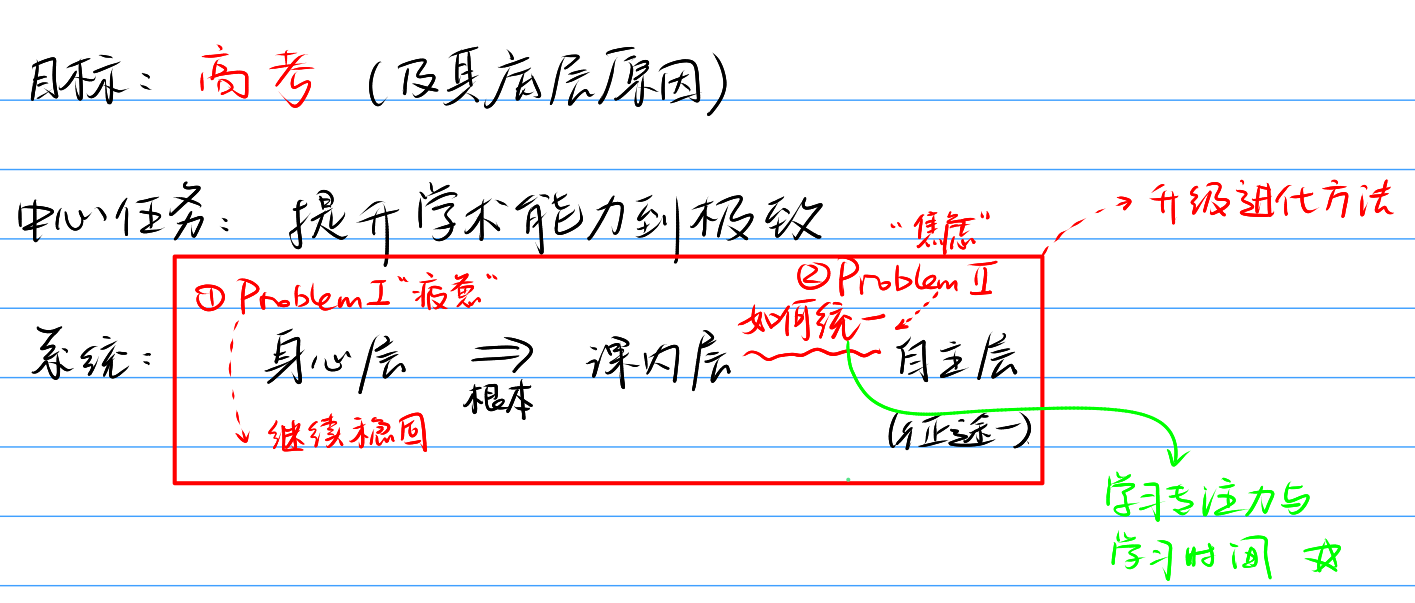 目标：高考（及其底层原因）
升级进化方法
中心任务：提升学术能力到极致
“焦虑”
① Problem I “疲惫”
② Problem II
如何统一
系统：身心层 ⇒ 课内层 自主层
根本
继续稳固
学习专注力与
学习时间 ☆